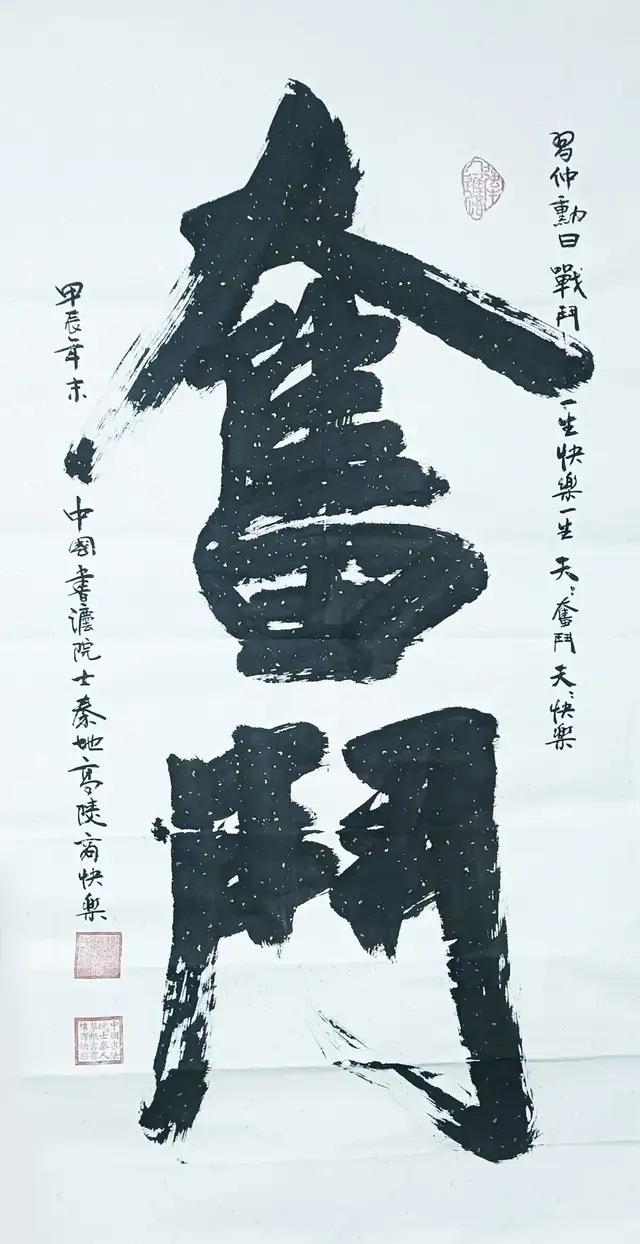 習仲勳曰 戰鬥一生快樂一生 天〻奮鬥 天〻快樂
奮鬥
甲辰年末 中國書灋院士秦地高陵商快樂